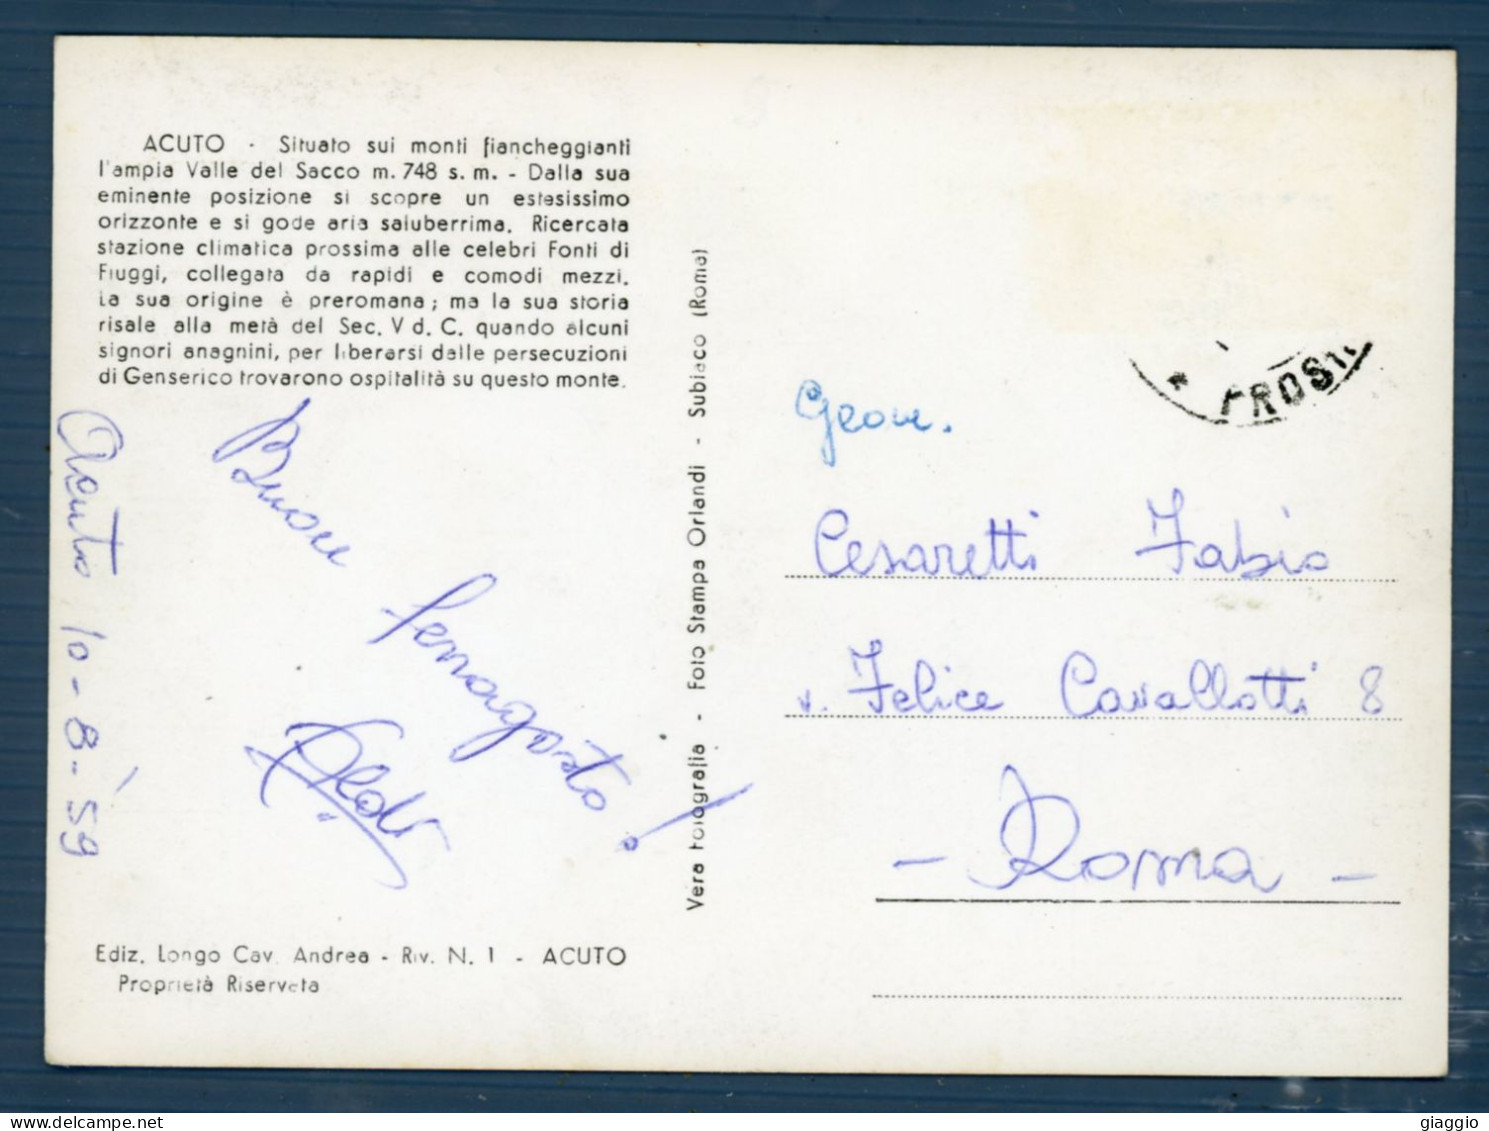 ACUTO - Situato sui monti fiancheggianti
l'ampia Valle del Sacco m. 748 s. m. - Dalla sua
eminente posizione si scopre un estesissimo
orizzonte e si gode aria saluberrima. Ricercata
stazione climatica prossima alle celebri Fonti di
Fiuggi, collegata da rapidi e comodi mezzi.
La sua origine è preromana; ma la sua storia
risale alla metà del Sec. V d. C. quando alcuni
signori anagnini, per liberarsi dalle persecuzioni
di Genserico trovarono ospitalità su questo monte.
Acuto 10-8-'59
Buon
ferragosto!
Aldi
Ediz. Longo Cav. Andrea - Riv. N. 1 - ACUTO
Proprietà Riservata
Vera Fotografia - Foto Stampa Orlandi - Subiaco (Roma)
* FROSI
Geom.
Cesaretti Fabio
v. Felice Cavallotti 8
- Roma -
giaggio